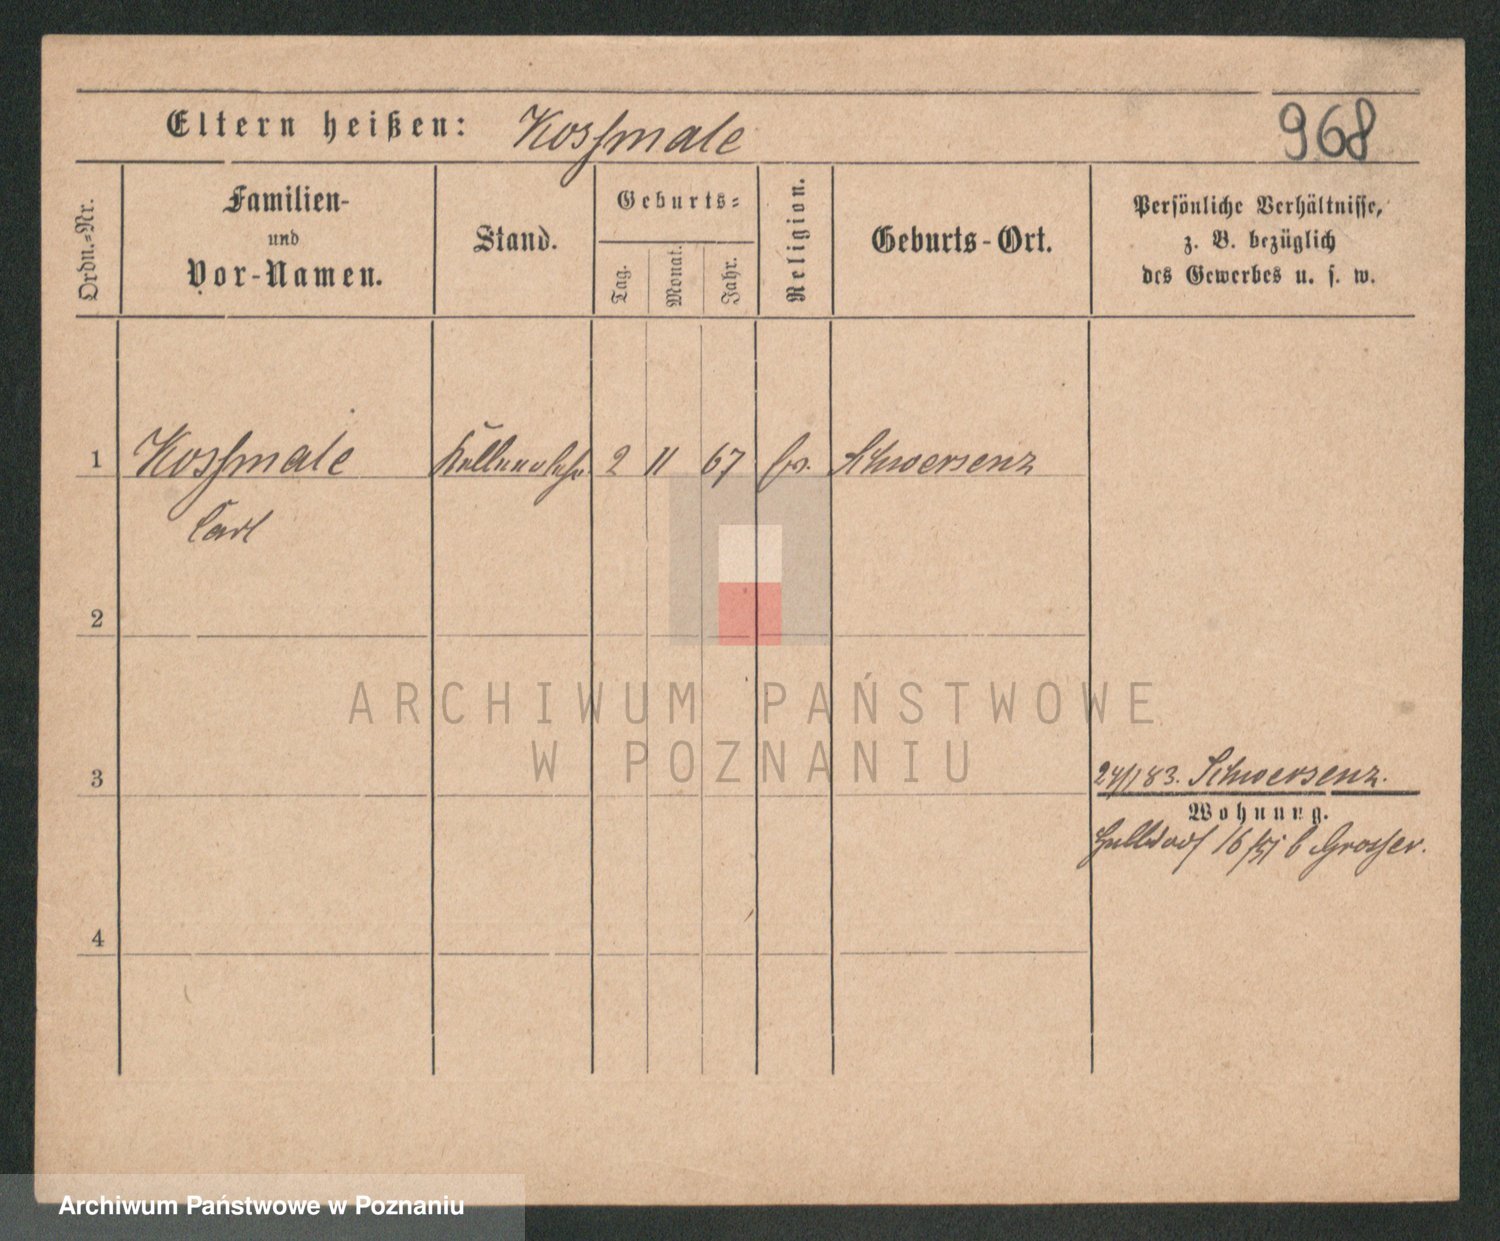 Eltern heißen: Kossmale 968
Ordn.-Nr.
Familien-
und
Vor-Namen.
Stand.
Geburts-
Tag.
Monat.
Jahr.
Religion.
Geburts-Ort.
Persönliche Verhältnisse,
z. B. bezüglich
des Gewerbes u. s. w.
1 Kossmale 2 11 67 Schwersenz
Carl
2
ARCHIWUM PAŃSTWOWE
W POZNANIU
3
83. Schwersenz.
Wohnung.
16 b Grosser.
4
Archiwum Państwowe w Poznaniu